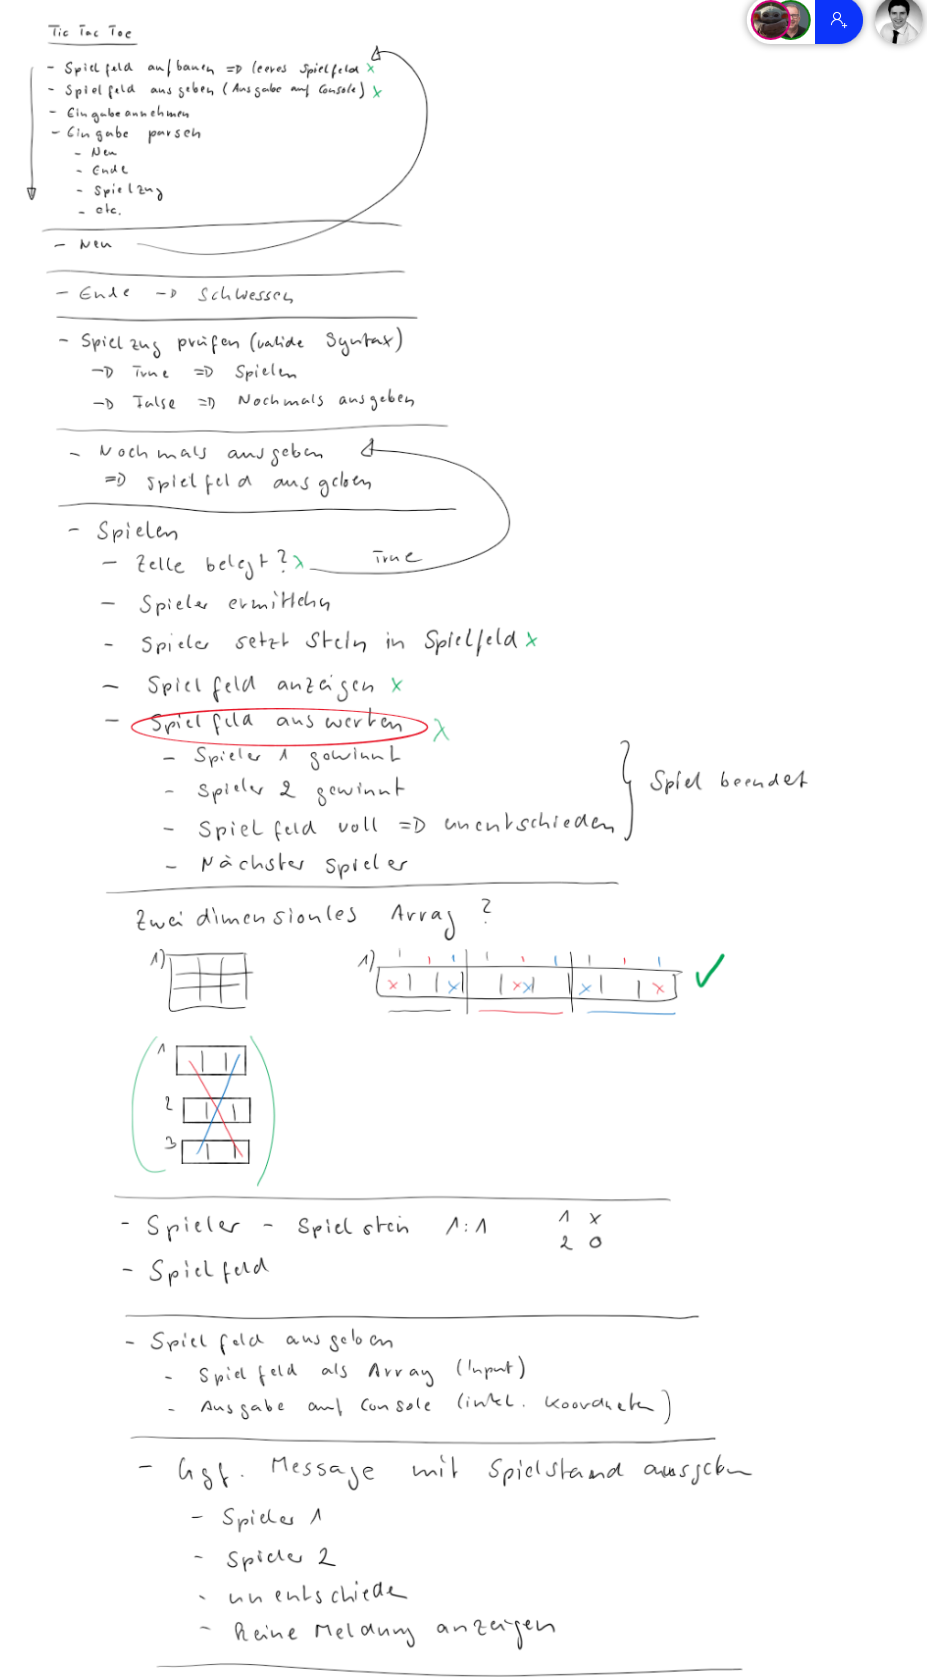 Tic Tac Toe
- Spielfeld aufbauen => leeres Spielfeld x
- Spielfeld ausgeben (Ausgabe auf Console) x
- Eingabe annehmen
- Eingabe parsen
- Neu
- Ende
- Spielzug
- etc.
- Neu
- Ende -> Schliessen
- Spielzug prüfen (valide Syntax)
-> True => Spielen
-> False => Nochmals ausgeben
- Nochmals ausgeben
=> Spielfeld ausgeben
- Spielen
- Zelle belegt? x True
- Spieler ermitteln
- Spieler setzt Stein in Spielfeld x
- Spielfeld anzeigen x
- Spielfeld auswerten x
- Spieler 1 gewinnt
- Spieler 2 gewinnt
- Spielfeld voll => unentschieden
Spiel beendet
- Nächster Spieler
Zweidimensionles Array ?
1)
1) x x x x x x
1
2
3
- Spieler - Spielstein 1:1 1 x
2 O
- Spielfeld
- Spielfeld ausgeben
- Spielfeld als Array (Input)
- Ausgabe auf Console (inkl. Koordinaten)
- Ggf. Message mit Spielstand ausgeben
- Spieler 1
- Spieler 2
- unentschieden
- Keine Meldung anzeigen